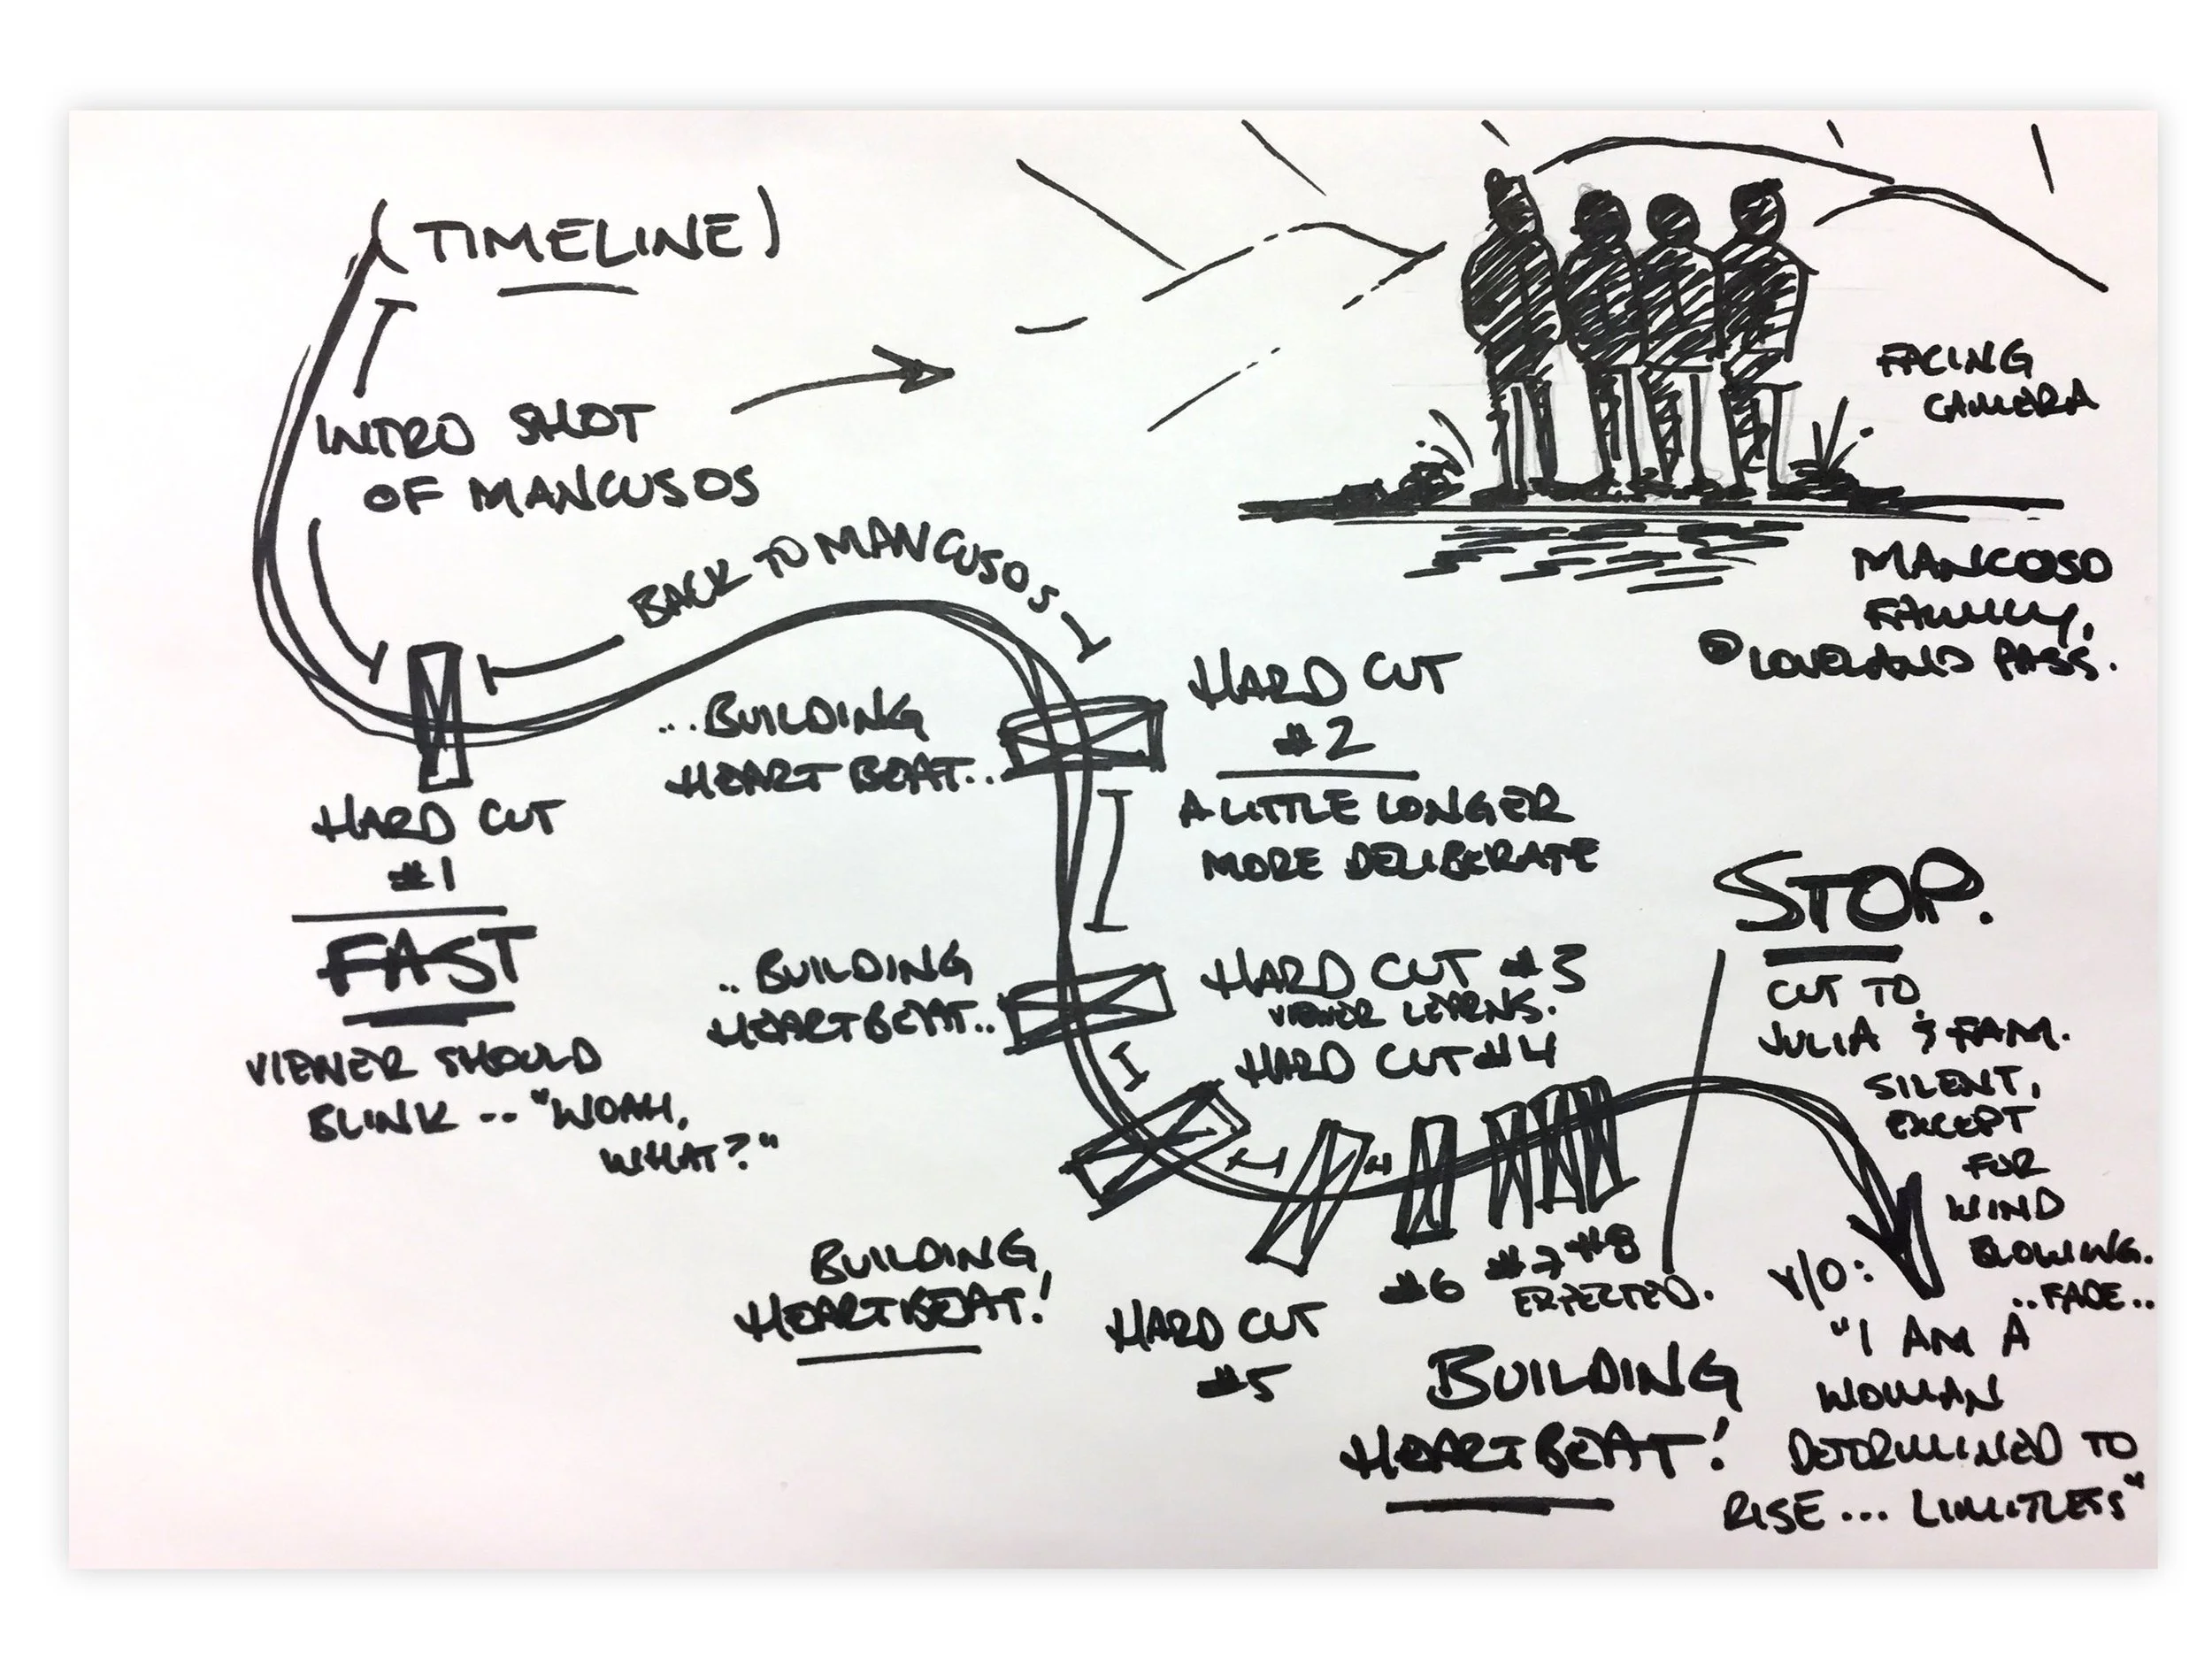 (TIMELINE)
INTRO SHOT
OF MANCUSOS
BACK TO MANCUSOS
FACING
CAMERA
MANCOSO
FAMILY,
@ LOVELAND PASS.
HARD CUT
#1
FAST
VIEWER SHOULD
BLINK -- "WOAH,
WHAT?"
...BUILDING
HEARTBEAT..
HARD CUT
#2
A LITTLE LONGER
MORE DELIBERATE
..BUILDING
HEARTBEAT..
HARD CUT #3
VIEWER LEARNS.
HARD CUT #4
BUILDING
HEARTBEAT!
HARD CUT
#5
#6
#7 #8
EXPECTED.
BUILDING
HEARTBEAT!
STOP.
CUT TO
JULIA & FAM.
SILENT,
EXCEPT
FOR
WIND
BLOWING.
..FADE..
V/O:
"I AM A
WOMAN
DETERMINED TO
RISE... LIMITLESS"